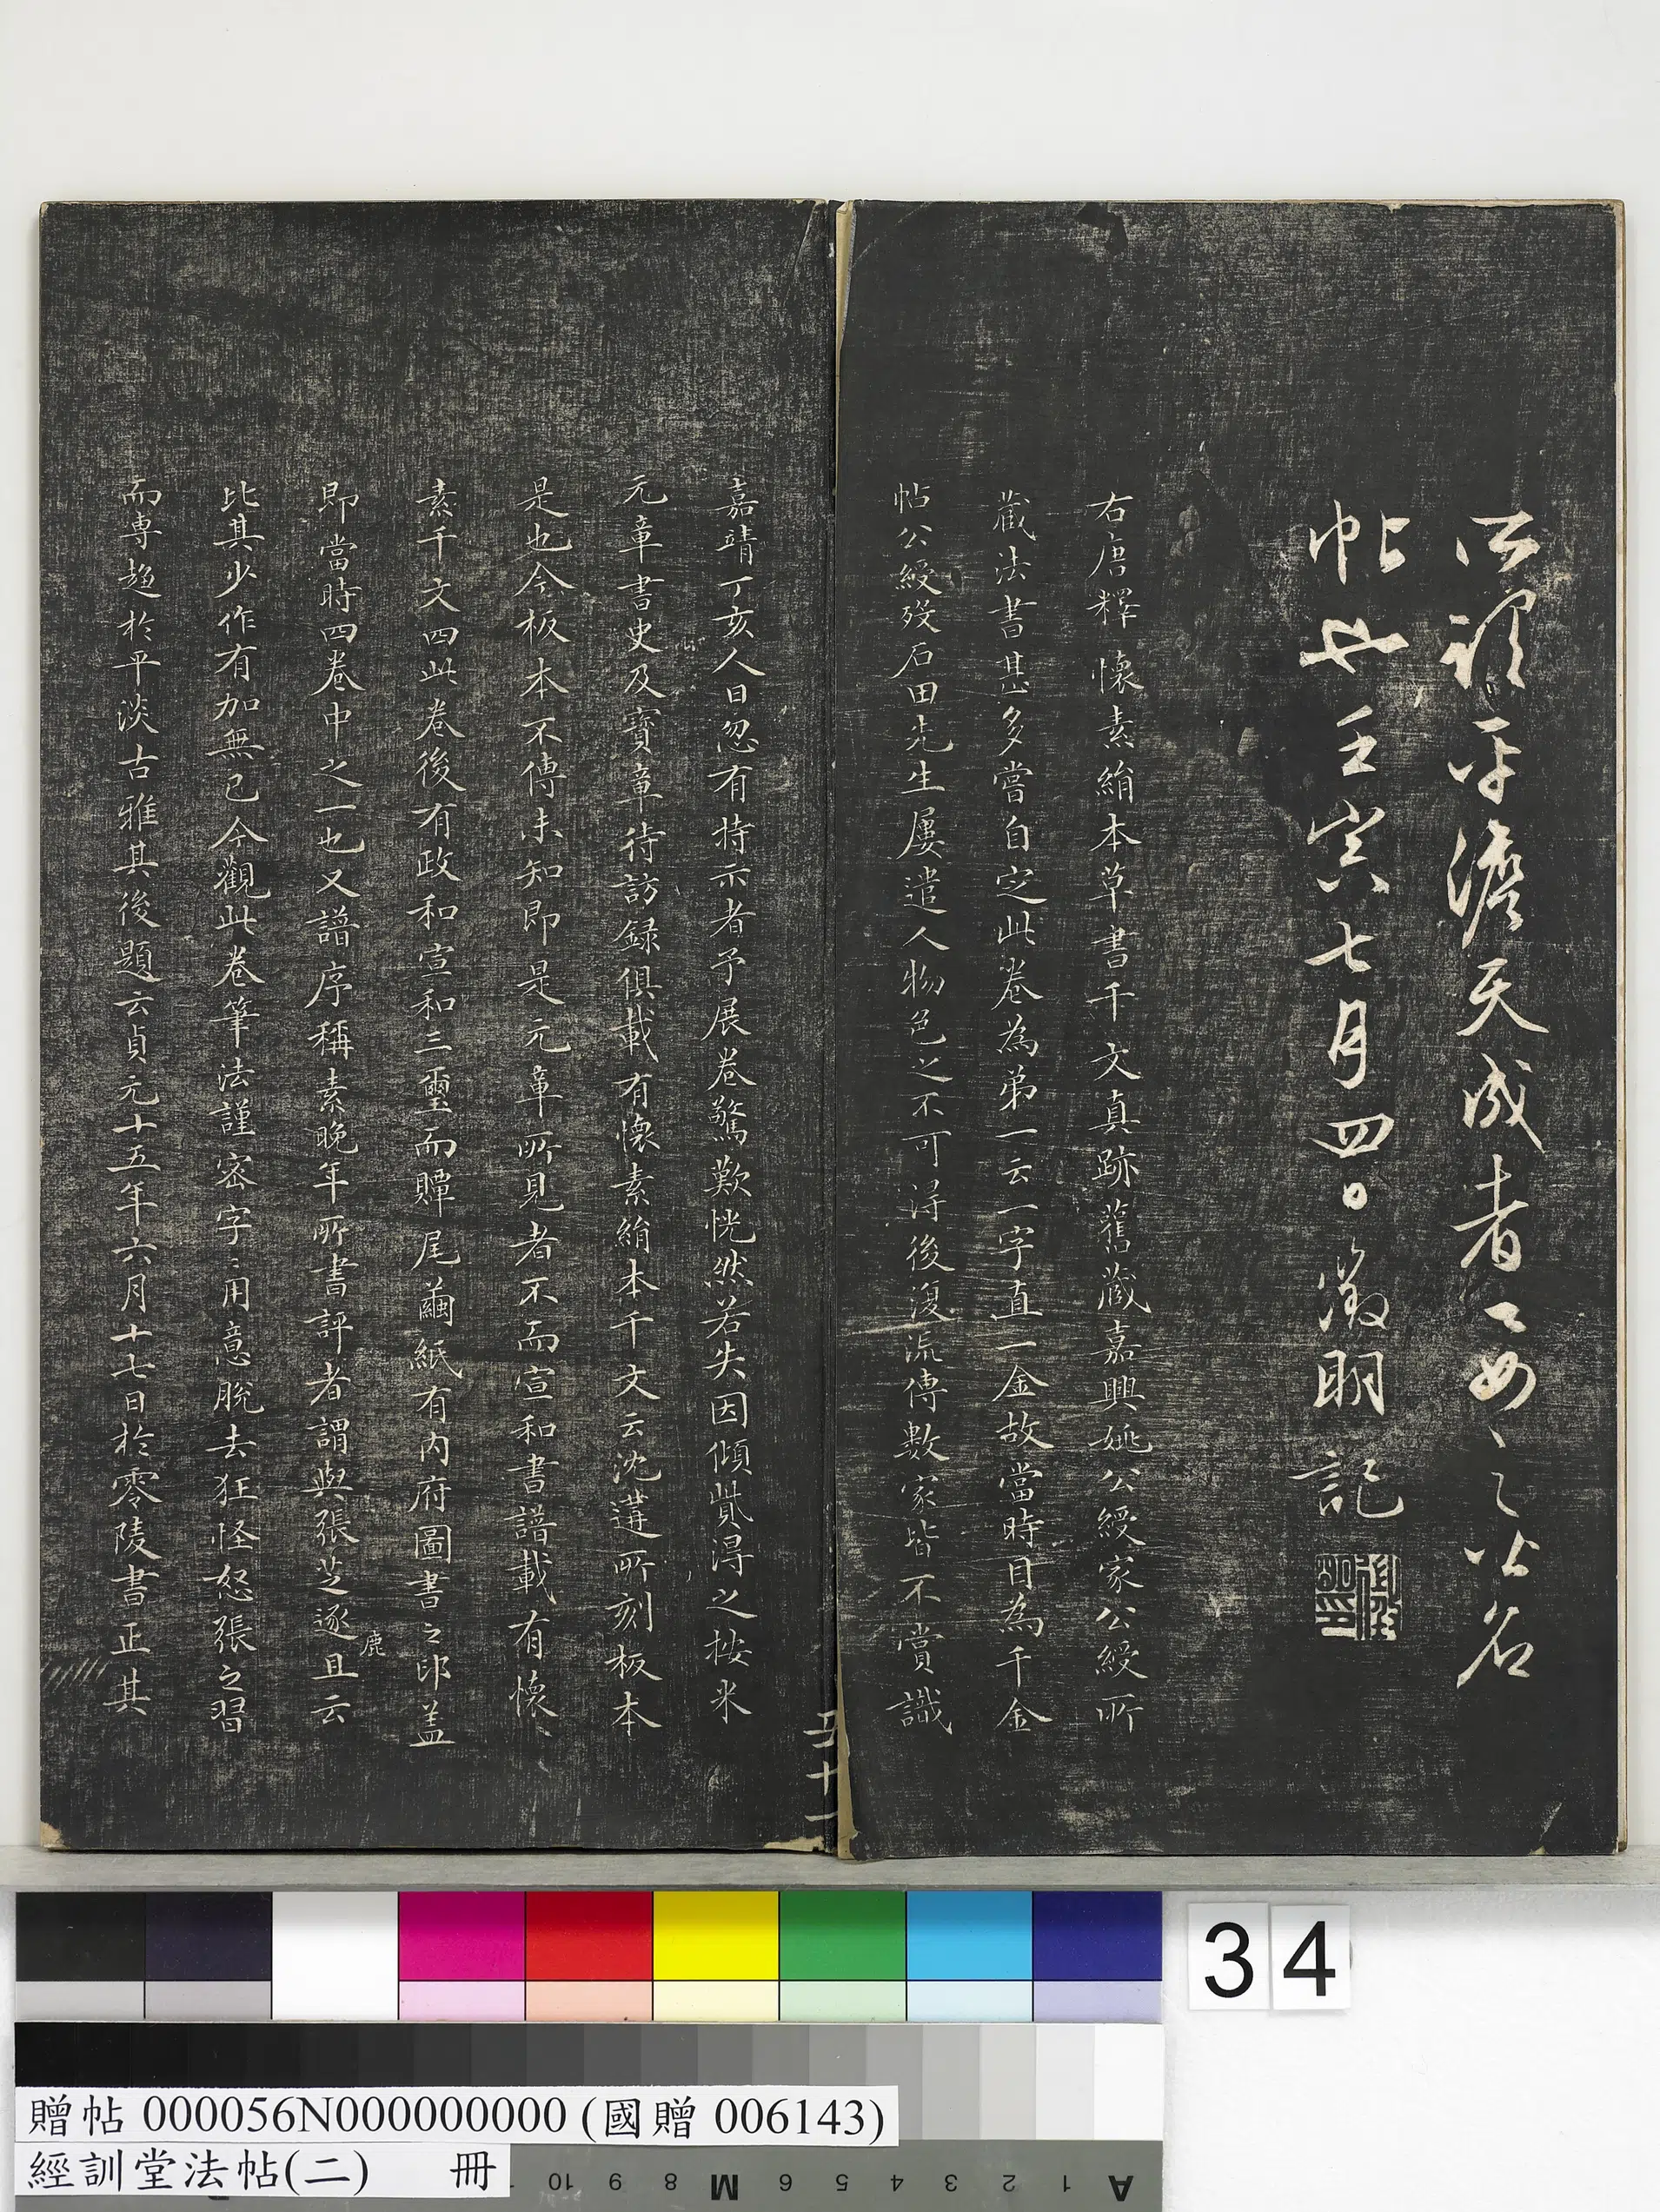 公頴平澹天成者工妙之
帖也壬寅七月四日徵明記
右唐釋懷素絹本草書千文真跡舊藏嘉興姚公綬家公綬所
藏法書甚多嘗自定此卷為弟一云一字直一金故當時目為千金
帖公綬歿石田先生屢遣人物色之不可得後復流傳數家皆不賞識
嘉靖丁亥人日忽有持示者予展卷驚歎恍然若失因傾貲得之按米
元章書史及寶章待訪録俱載有懷素絹本千文云沈遘所刻板本
是也今板本不傳未知即是元章所見者不而宣和書譜載有懷
素千文四此卷後有政和宣和三璽而贉尾繭紙有內府圖書之印盖
即當時四卷中之一也又譜序稱素晚年所書評者謂與張芝逐鹿且云
比其少作有加無已今觀此卷筆法謹密字〻用意脫去狂怪怒張之習
而專趋於平淡古雅其後題云貞元十五年六月十七日於零陵書正其
五十二
34
贈帖 000056N000000000 (國贈 006143)
經訓堂法帖(二) 冊
10 9 8 M 6 5 4 3 2 1 A